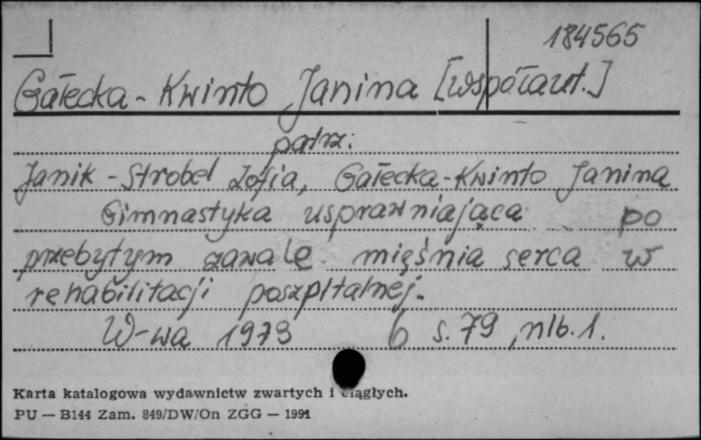 184565
Gałecka-Kwinto Janina [współaut.]
patrz:
Janik-Strobel Zofia, Gałecka-Kwinto Janina
Gimnastyka usprawniająca po
przebytym zawale mięśnia serca w
rehabilitacji poszpitalnej.
W-wa 1973 6 s. 79, nlb. 1.
Karta katalogowa wydawnictw zwartych i ciągłych.
PU — B144 Zam. 849/DW/On ZGG — 1991